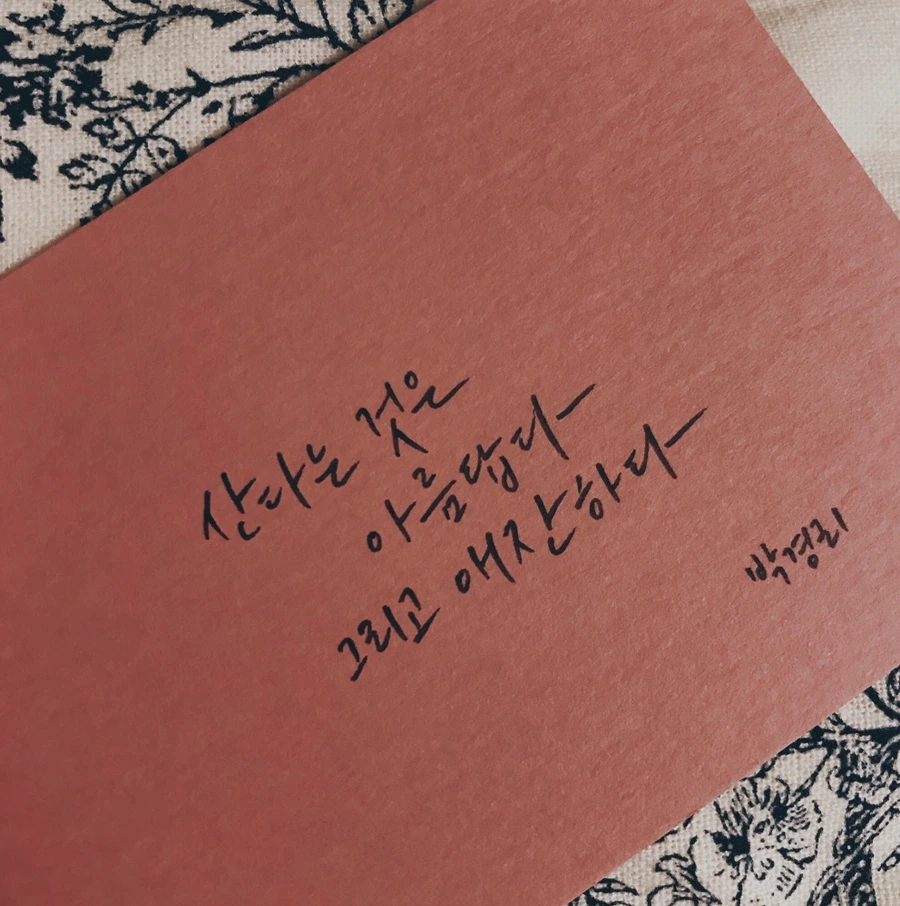 산다는 것은
아름답다
그리고 애잔하다
박경리